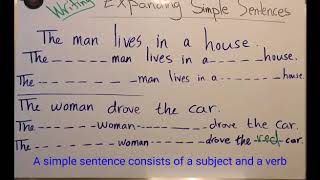 Writing Expanding Simple Sentences
The man lives in a house.
The _ _ _ _ _ man lives in a _ _ _ _ _ house.
The _ _ _ _ _ _ _ _ _ man lives in a _ _ _ _ _ _ _ house
The woman drove the car.
The _ _ _ _ _ _ woman _ _ _ _ _ _ _ drove the car.
The _ _ _ _ _ _ _ _ woman _ _ _ _ _ _ drove the red car.
A simple sentence consists of a subject and a verb